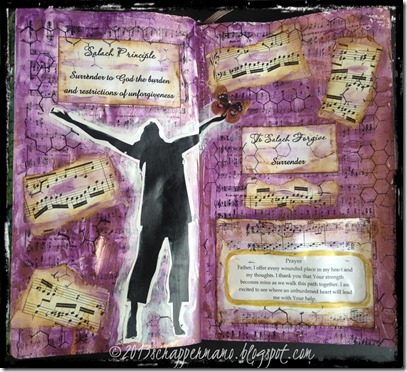 Salach Principle
Surrender to God the burden
and restrictions of unforgiveness
To Salach Forgive
Surrender
Prayer
Father, I offer every wounded place in my heart and
my thoughts. I thank you that Your strength
becomes mine as we walk this path together. I am
excited to see where an unburdened heart will lead
me with Your help.
©2013schappermano.blogspot.com